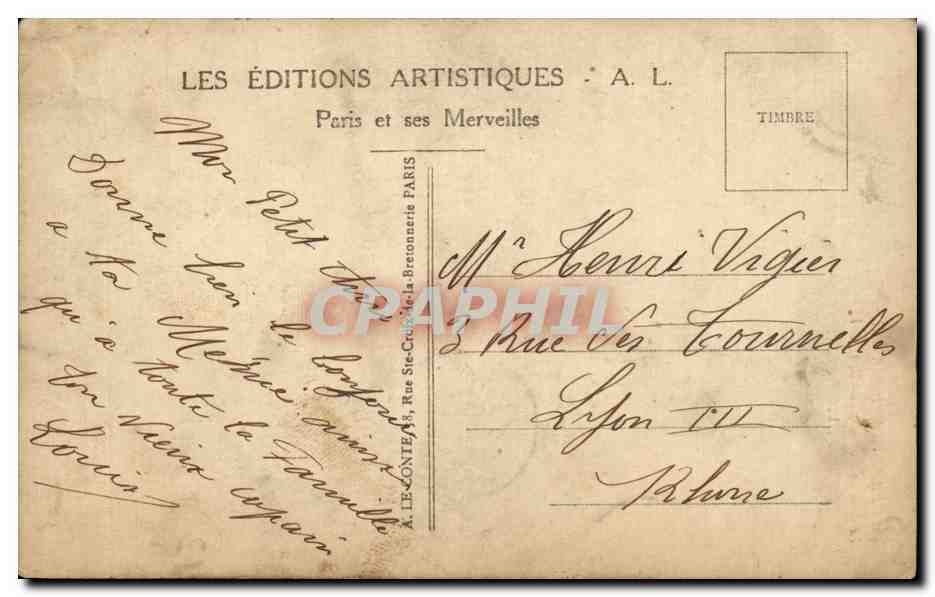 LES ÉDITIONS ARTISTIQUES - A. L.
Paris et ses Merveilles
TIMBRE
A. LE CONTE, 38, Rue Ste-Croix-de-la-Bretonnerie PARIS
Mon Petit
Donne bien le bonjour
a ta Mémé ainsi
qu'à toute la Famille
ton Vieux copain
Louis
Mr Henri Vigier
3 Rue des Tournelles
Lyon III
Rhône
CPAPHIL